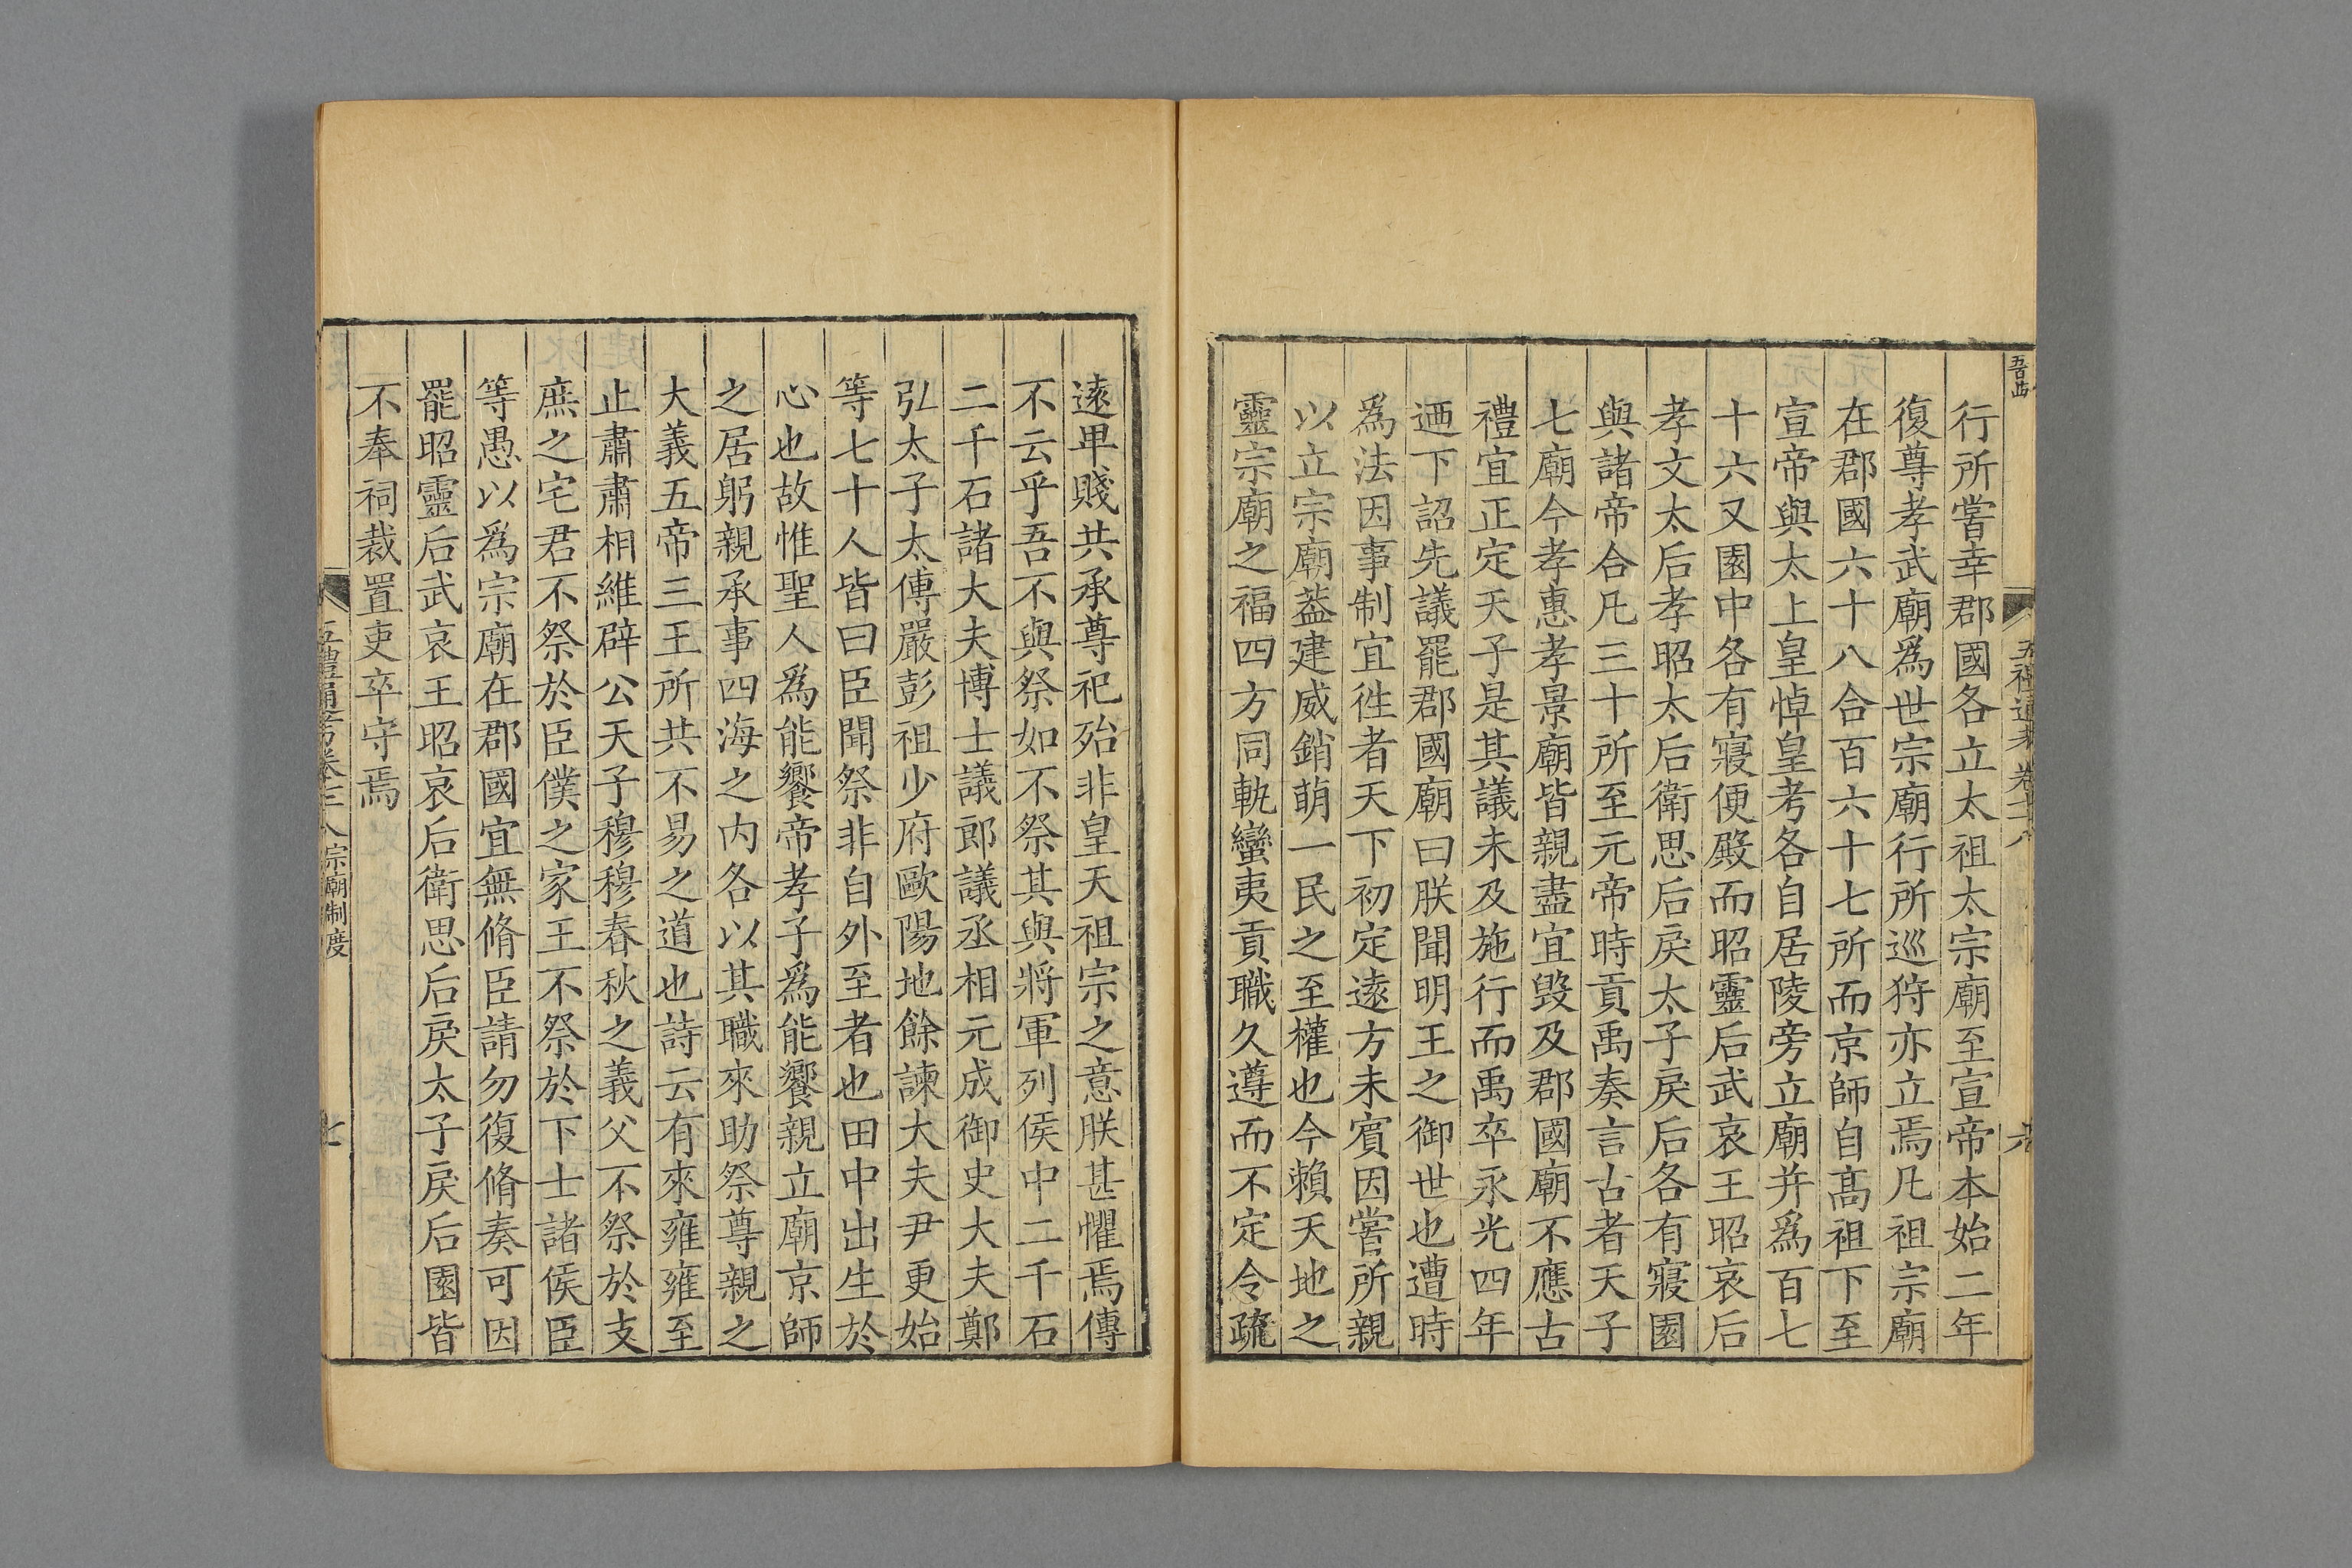 行所嘗幸郡國各立太祖太宗廟至宣帝本始二年
復尊孝武廟爲世宗廟行所巡狩亦立焉凡祖宗廟
在郡國六十八合百六十七所而京師自髙祖下至
宣帝與太上皇悼皇考各自居陵旁立廟并爲百七
十六又園中各有寢便殿而昭靈后武哀王昭哀后
孝文太后孝昭太后衛思后戾太子戾后各有寢園
與諸帝合凡三十所至元帝時貢禹奏言古者天子
七廟今孝惠孝景廟皆親盡宜毀及郡國廟不應古
禮宜正定天子是其議未及施行而禹卒永光四年
迺下詔先議罷郡國廟曰朕聞明王之御世也遭時
爲法因事制宜徃者天下初定遠方未賓因嘗所親
以立宗廟葢建威銷萌一民之至權也今賴天地之
靈宗廟之福四方同軌蠻夷貢職久遵而不定令疏
遠卑賤共承尊祀殆非皇天祖宗之意朕甚懼焉傳
不云乎吾不與祭如不祭其與將軍列侯中二千石
二千石諸大夫博士議郎議丞相元成御史大夫鄭
弘太子太傅嚴彭祖少府歐陽地餘諫大夫尹更始
等七十人皆曰臣聞祭非自外至者也由中出生於
心也故惟聖人爲能饗帝孝子爲能饗親立廟京師
之居躬親承事四海之内各以其職來助祭尊親之
大義五帝三王所共不易之道也詩云有來雍雍至
止肅肅相維辟公天子穆穆春秋之義父不祭於支
庶之宅君不祭於臣僕之家王不祭於下士諸侯臣
等愚以爲宗廟在郡國宜無脩臣請勿復脩奏可因
罷昭靈后武哀王昭哀后衛思后戾太子戾后園皆
不奉祠裁置吏卒守焉
五禮通考卷三八宗廟制度
七